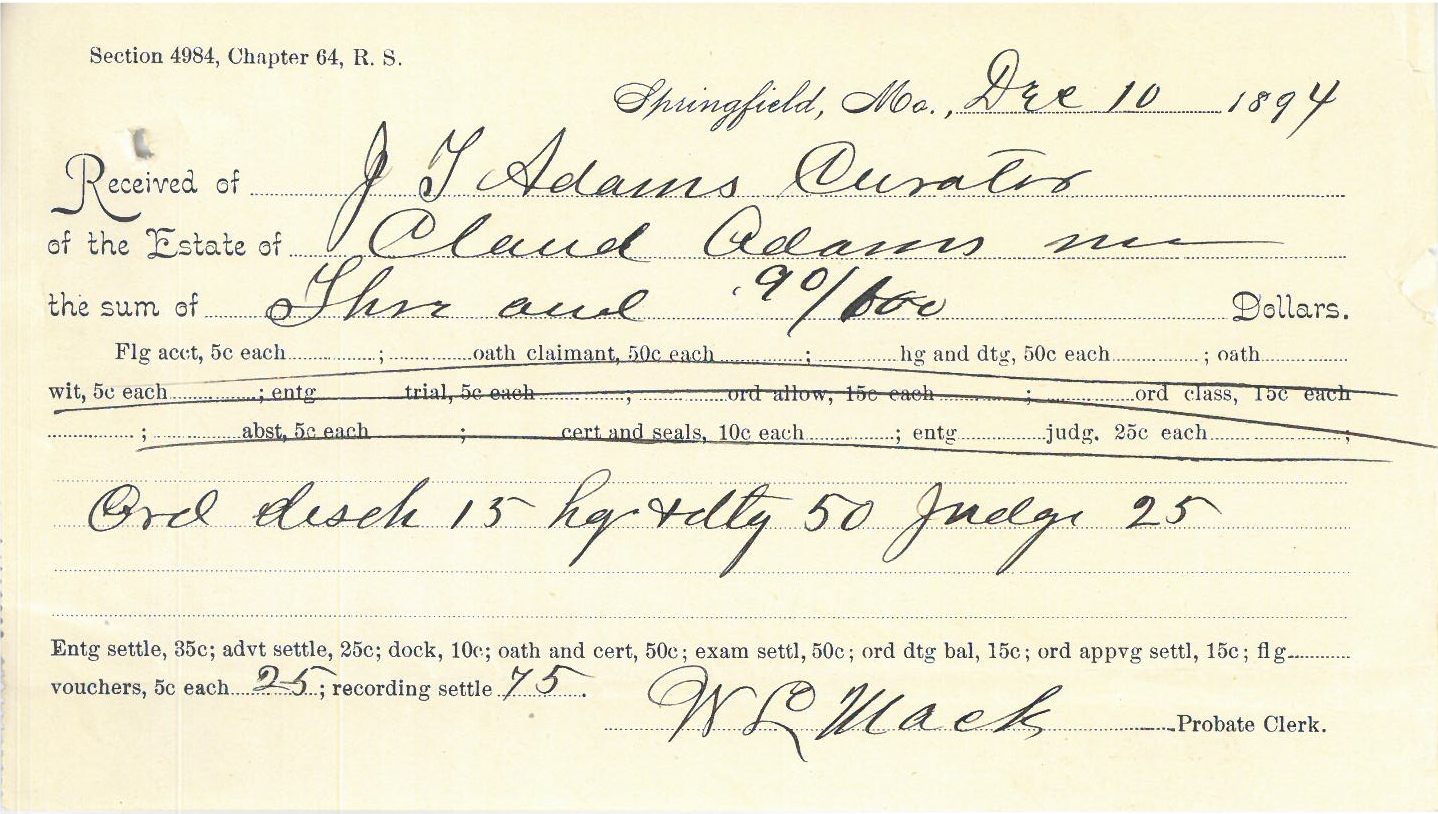 Section 4984, Chapter 64, R. S.
Springfield, Mo., Dec 10 1894
Received of J T Adams Curator
of the Estate of Claud Adams
the sum of Thre and 90/100 Dollars.
Flg acct, 5c each ; oath claimant, 50c each ; hg and dtg, 50c each ; oath
wit, 5c each ; entg trial, 5c each ; ord allow, 15c each ; ord class, 15c each
; abst, 5c each ; cert and seals, 10c each ; entg judg. 25c each ;
Ord disch 15 hg & dtg 50 Judge 25
Entg settle, 35c; advt settle, 25c; dock, 10c; oath and cert, 50c; exam settl, 50c; ord dtg bal, 15c; ord appvg settl, 15c; flg
vouchers, 5c each 25; recording settle 75.
W L Mack Probate Clerk.